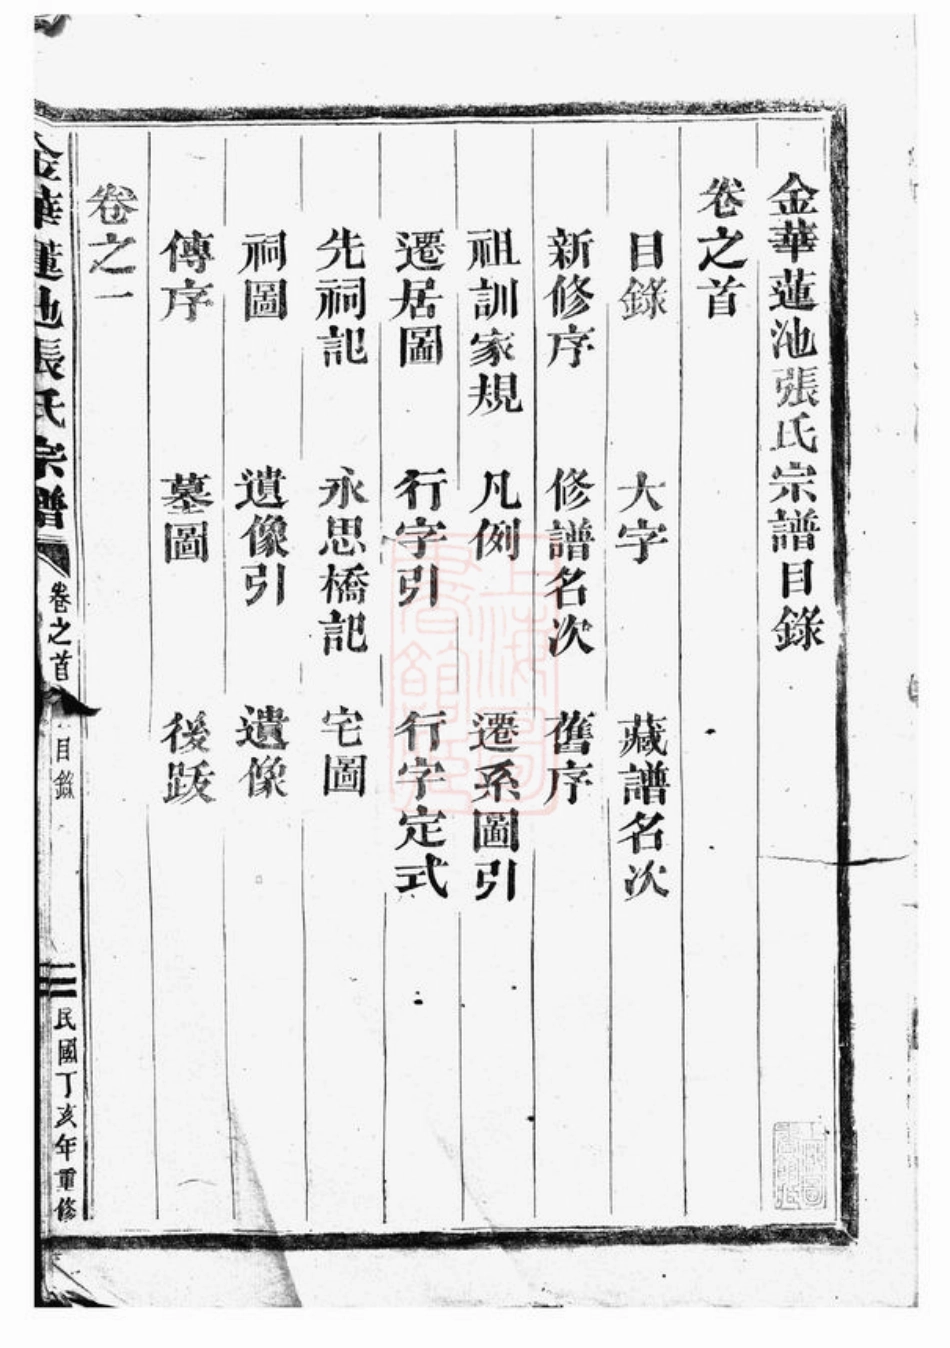 金華蓮池張氏宗譜目錄
卷之首
目錄 大字 藏譜名次
新修序 修譜名次 舊序
祖訓家規 凡例 遷系圖引
遷居圖 行字引 行字定式
先祠記 永思橋記 宅圖
祠圖 遺像引 遺像
傳序 墓圖 後跋
卷之一
金華蓮池張氏宗譜 卷之首 目錄 一 民國丁亥年重修
上海圖書館藏